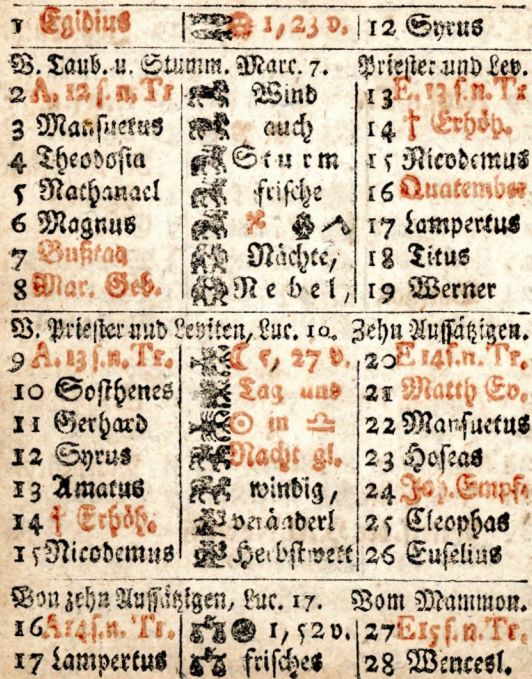 1 Egidius 1, 23 v. 12 Syrus
V. Taub. u. Stumm. Marc. 7. Priester und Lev.
2 A. 12 s. n. Tr Wind 13 E. 13 s. n. Tr
3 Mansuetus auch 14 † Erhöh.
4 Theodosia Sturm 15 Nicodemus
5 Nathanael frische 16 Quatember
6 Magnus 17 Lampertus
7 Bußtag Nächte, 18 Titus
8 Mar. Geb. Nebel, 19 Werner
V. Priester und Leviten, Luc. 10. Zehn Aussätzigen.
9 A. 13 s. n. Tr. ☾ 5, 27 v. 20 E 14 s. n. Tr.
10 Sosthenes Tag und 21 Matth Ev.
11 Gerhard ☉ in ♎ 22 Mansuetus
12 Syrus Nacht gl. 23 Hoseas
13 Amatus windig, 24 Joh. Empf.
14 † Erhöh. veränderl 25 Cleophas
15 Nicodemus Herbstwett 26 Euselius
Von zehn Aussätzigen, Luc. 17. Vom Mammon.
16 A 14 s. n. Tr. 1, 52 v. 27 E 15 s. n. Tr.
17 Lampertus frisches 28 Wencesl.